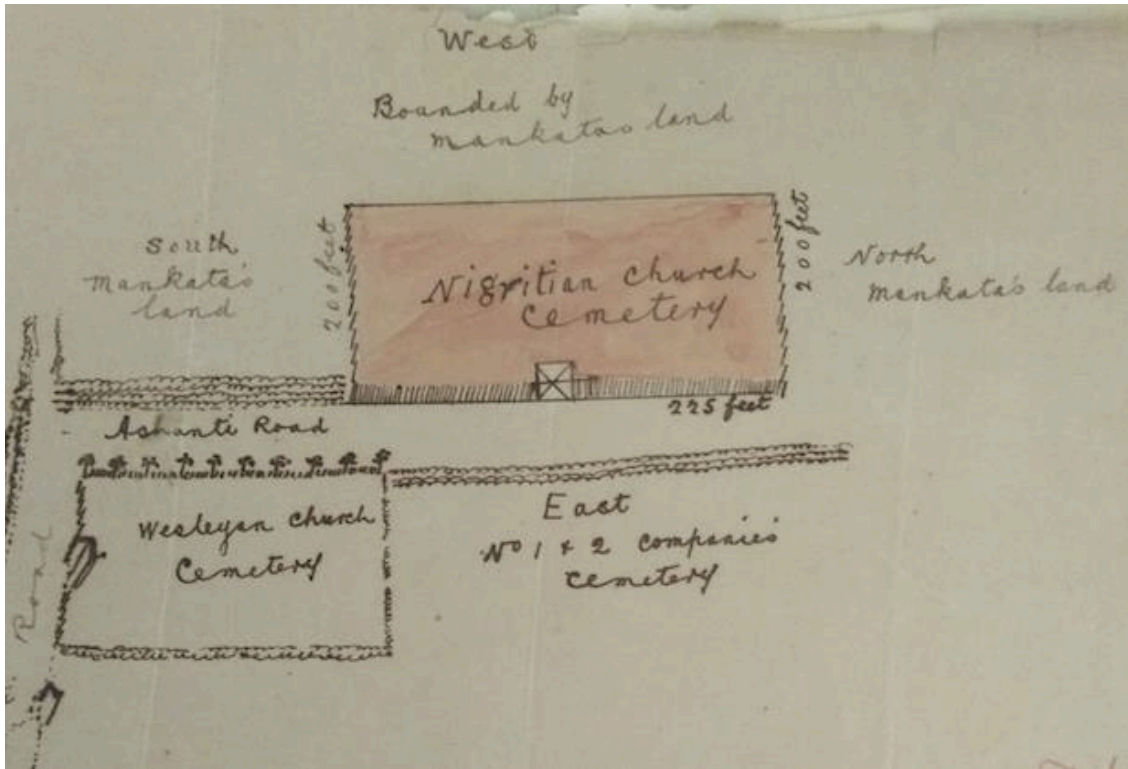 West
Bounded by
Mankata's land
South
Mankata's
land
200 feet
Nigritian Church
Cemetery
200 feet
North
Mankata's land
225 feet
Ashanti Road
Wesleyan Church
Cemetery
East
No 1 & 2 Companies
Cemetery
Road